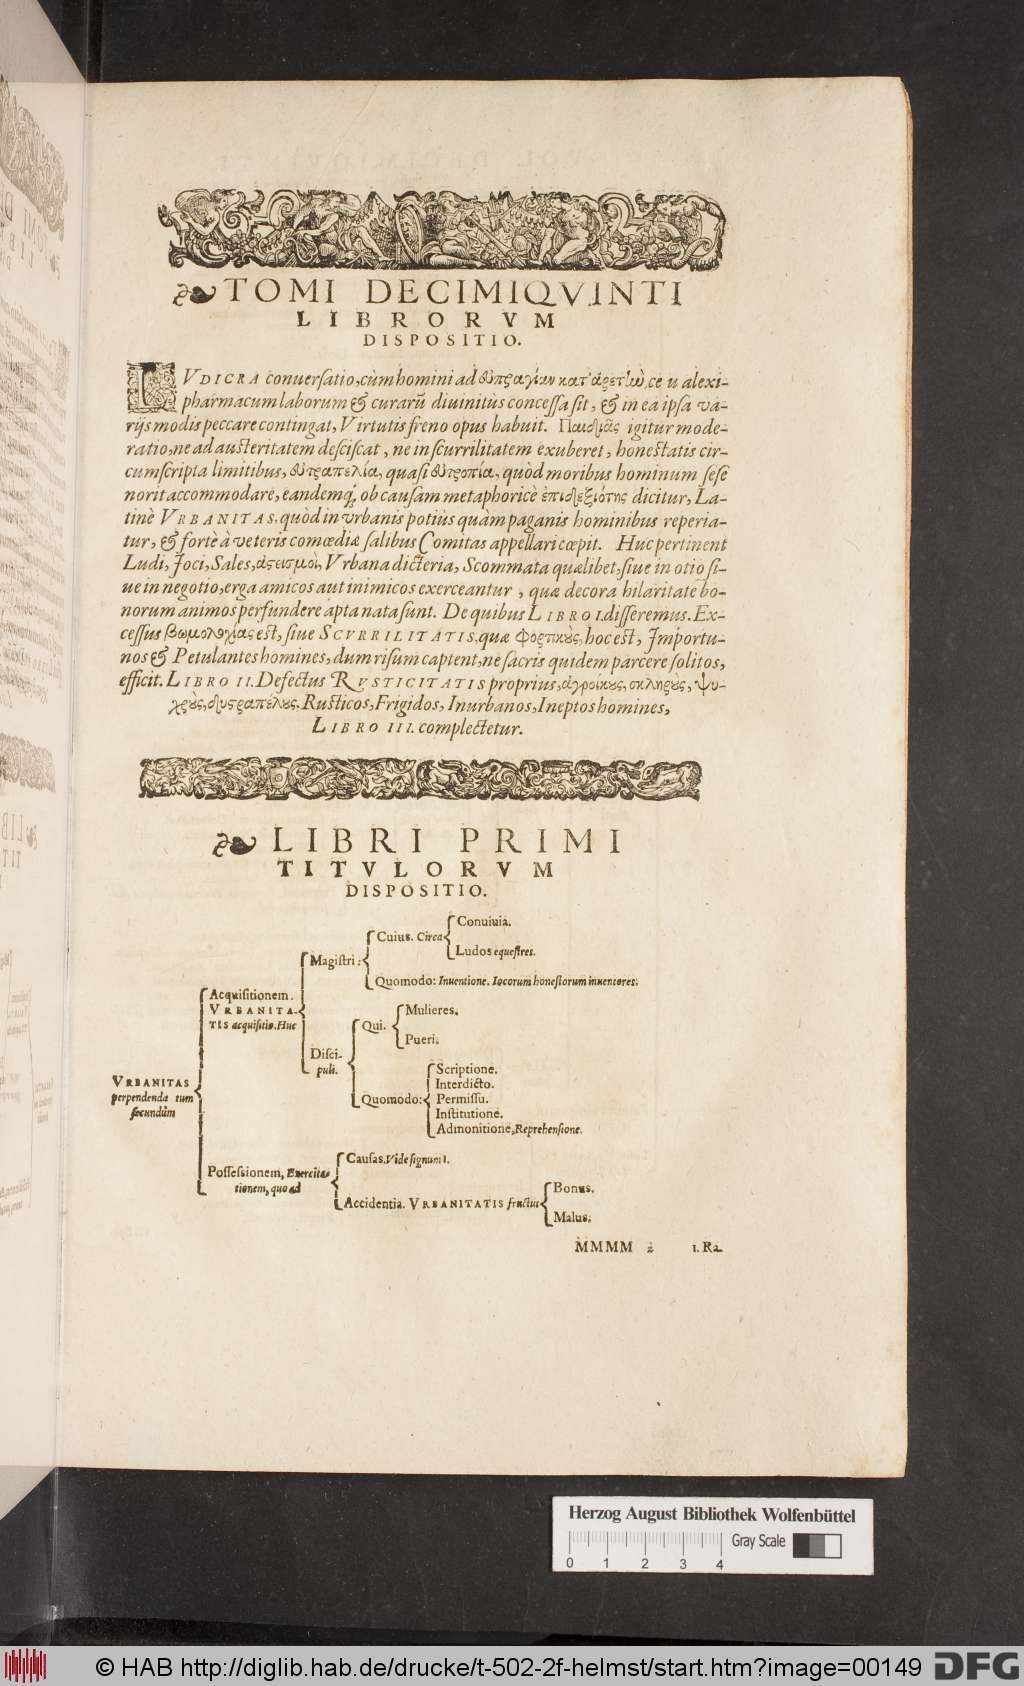 TOMI DECIMIQVINTI
LIBRORVM
DISPOSITIO.
LVDICRA conuersatio, cùm homini ad εὐπραγίαν κατ' ἀρετὴν, ceu alexi-
pharmacum laborum & curarū diuinitùs concessa sit, & in ea ipsa va-
rijs modis peccare contingat, Virtutis freno opus habuit. Παιδιᾶς igitur mode-
ratio, ne ad austeritatem desciscat, ne in scurrilitatem exuberet, honestatis cir-
cumscripta limitibus, εὐτραπελία, quasi εὐτροπία, quòd moribus hominum sese
norit accommodare, eandemq; ob causam metaphoricè ἐπιδεξιότης dicitur, La-
tinè VRBANITAS, quòd in vrbanis potiùs quàm paganis hominibus reperia-
tur, & fortè à veteris comœdiæ salibus Comitas appellari cœpit. Huc pertinent
Ludi, Joci, Sales, ἀστεισμοὶ, Vrbana dicteria, Scommata quælibet, siue in otio si-
ue in negotio, erga amicos aut inimicos exerceantur, quæ decora hilaritate bo-
norum animos perfundere apta nata sunt. De quibus LIBRO I. disseremus. Ex-
cessus βωμολοχίας est, siue SCVRRILITATIS, quæ φορτικοὺς, hoc est, Importu-
nos & Petulantes homines, dum risum captent, ne sacris quidem parcere solitos,
efficit. LIBRO II. Defectus RVSTICITATIS proprius, ἀγροίκους, σκληροὺς, ψυ-
χροὺς, δυστραπέλους, Rusticos, Frigidos, Inurbanos, Ineptos homines,
LIBRO III. complectetur.
LIBRI PRIMI
TITVLORVM
DISPOSITIO.
Conuiuia.
Cuius. Circa
Ludos equestres.
Magistri:
Quomodo: Inuentione. Iocorum honestorum inuentores.
Acquisitionem.
VRBANITA-
TIS acquisitio. Huc
Mulieres.
Qui.
Pueri.
Disci-
puli.
Scriptione.
Interdicto.
Quomodo: Permissu.
Institutione.
Admonitione, Reprehensione.
VRBANITAS
perpendenda tum
secundùm
Causas. Vide signum I.
Possessionem, Exercita-
tionem, quo ad
Accidentia. VRBANITATIS fructus
Bonus.
Malus.
MMMM 2 1. Ra-
Herzog August Bibliothek Wolfenbüttel
Gray Scale
0 1 2 3 4
© HAB http://diglib.hab.de/drucke/t-502-2f-helmst/start.htm?image=00149 DFG